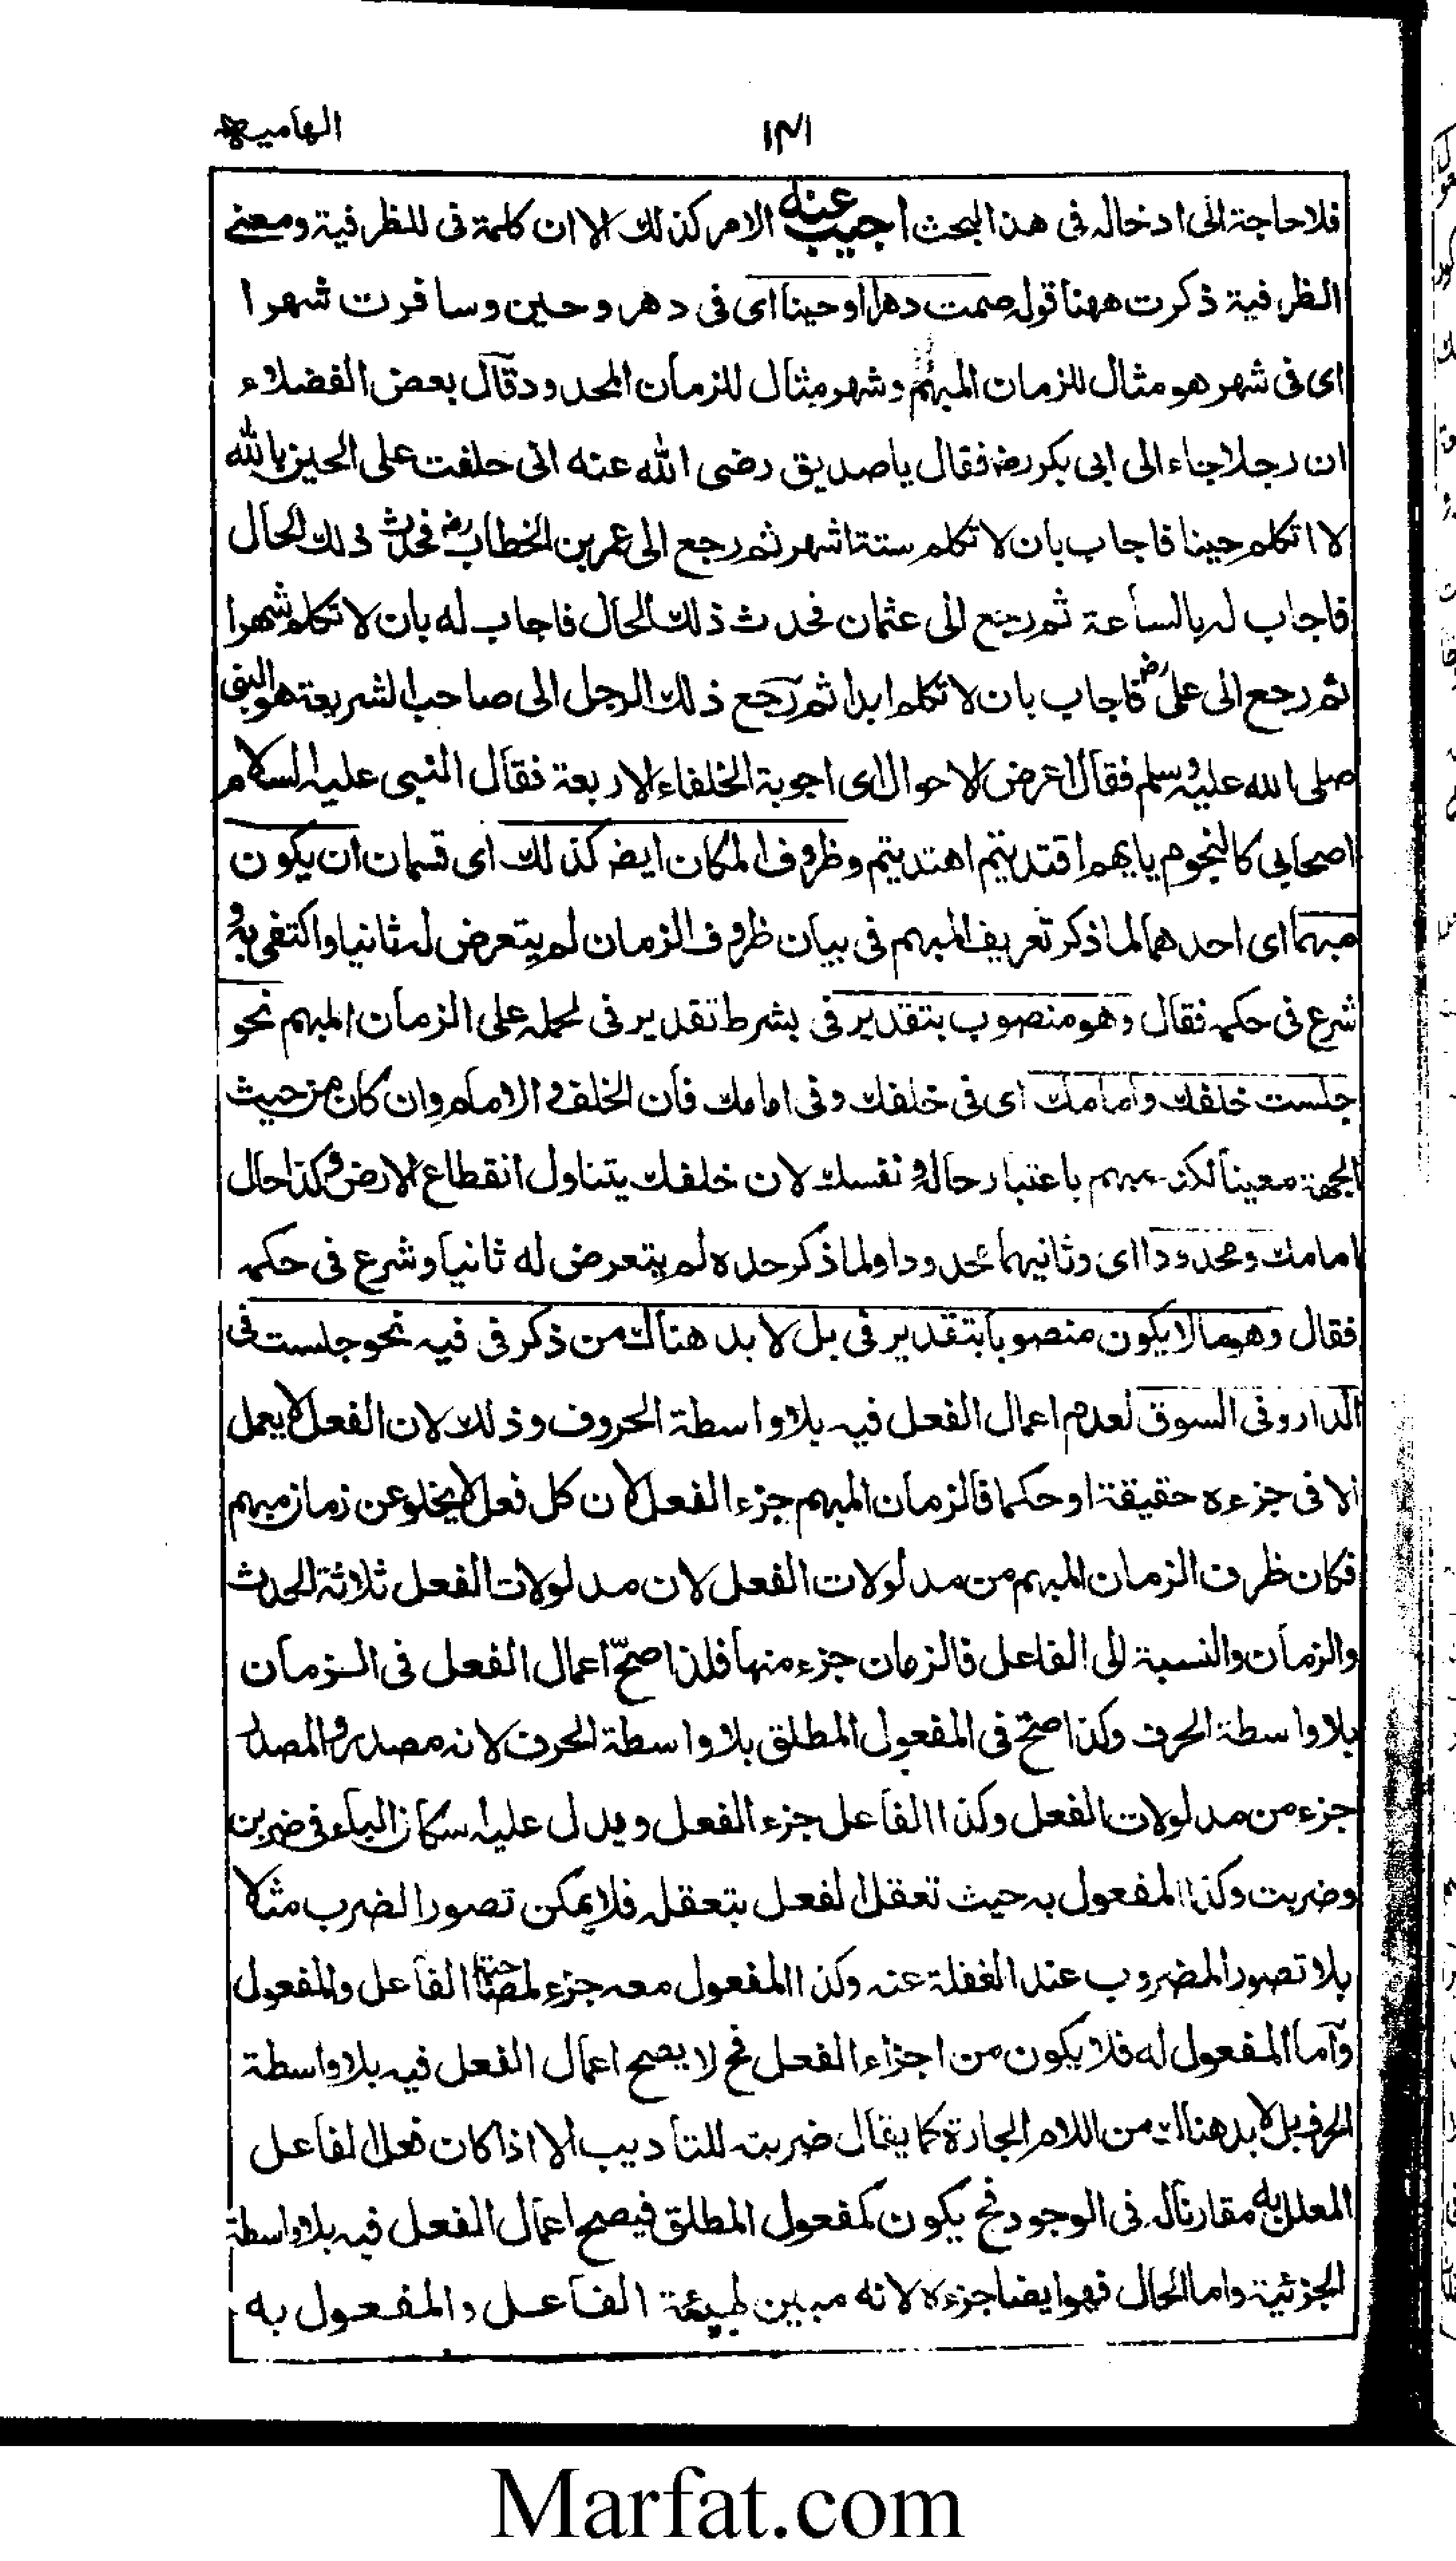 الهامیه
۱۴۱
فلا حاجة الى ادخاله فى هذا المبحث اجيب عنه الامر كذلك الا ان كلمة فى للظرفية ومعنے
الظرفية ذكرت ههنا قوله صمت دهرا وحينا اى فى دهر وحين وسافرت شهرا
اى فى شهر هو مثال للزمان المبهم وشهر مثال للزمان المحدود قال بعض الفضلاء
ان رجلا جاء الى ابى بكر رض فقال يا صديق رضى الله عنه انى حلفت على الحين بالله
لا اتكلم حينا فاجاب بان لا تكلم ستة اشهر ثم رجع الى عمر بن الخطاب رض فحدث ذلك الحال
فاجاب له بالساعة ثم رجع الى عثمان فحدث ذلك الحال فاجاب له بان لا تكلم شهرا
ثم رجع الى على رض فاجاب بان لا تكلم ابدا ثم رجع ذلك الرجل الى صاحب الشريعة هو النبى
صلى الله عليه وسلم فقال اعرض الاحوال اى اجوبة الخلفاء الاربعة فقال النبى عليه السلام
اصحابى كالنجوم بايهم اقتديتم اهتديتم وظروف المكان ايض كذلك اى قسمان ان يكون
مبهما اى احدهما لما ذكر تعريف المبهم فى بيان ظروف الزمان لم يتعرض له ثانيا واكتفى به و
شرع فى حكمه فقال وهو منصوب بتقدير فى بشرط تقدير فى لحمله على الزمان المبهم نحو
جلست خلفك وامامك اى فى خلفك وفى امامك فان الخلف والامام وان كان من حيث
الجهة معينا لكن مبهم باعتبار حاله و نفسك لان خلفك يتناول انقطاع الارض وكذا حال
امامك ومحدودا اى وثانيهما محدودا ولما ذكر حده لم يتعرض له ثانيا وشرع فى حكمه
فقال وهو ما لا يكون منصوبا بتقدير فى بل لا بد هناك من ذكر فى فيه نحو جلست فى
الدار وفى السوق لعدم اعمال الفعل فيه بلا واسطة الحروف وذلك لان الفعل لا يعمل
الا فى جزءه حقيقة او حكما فالزمان المبهم جزء الفعل لان كل فعل لا يخلو عن زمان مبهم
فكان ظرف الزمان المبهم من مدلولات الفعل لان مدلولات الفعل ثلاثة الحدث
والزمان والنسبة الى الفاعل فالزمان جزء منها فلذا صحّ اعمال الفعل فى الزمان
بلا واسطة الحرف وكذا صح فى المفعول المطلق بلا واسطة الحرف لانه مصدر والمصدر
جزء من مدلولات الفعل وكذا الفاعل جزء الفعل ويدل عليه اسكان الباء فى ضربن
وضربت وكذا المفعول به حيث تعقل الفعل بتعقله فلا يمكن تصور الضرب مثلا
بلا تصور المضروب عند الغفلة عنه وكذا المفعول معه جزء لمصاحبة الفاعل والمفعول
وآما المفعول له فلا يكون من اجزاء الفعل فح لا يصح اعمال الفعل فيه بلا واسطة
الحرف بل لا بد هناك من اللام الجارة كما يقال ضربته للتأديب الا اذا كان فعل الفاعل
المعلل به مقارنا له فى الوجود فح يكون كمفعول المطلق فيصح اعمال الفعل فيه بلا واسطة
الجزئية واما الحال فهو ايضا جزءه لانه مبين لهيئة الفاعل والمفعول به
Marfat.com